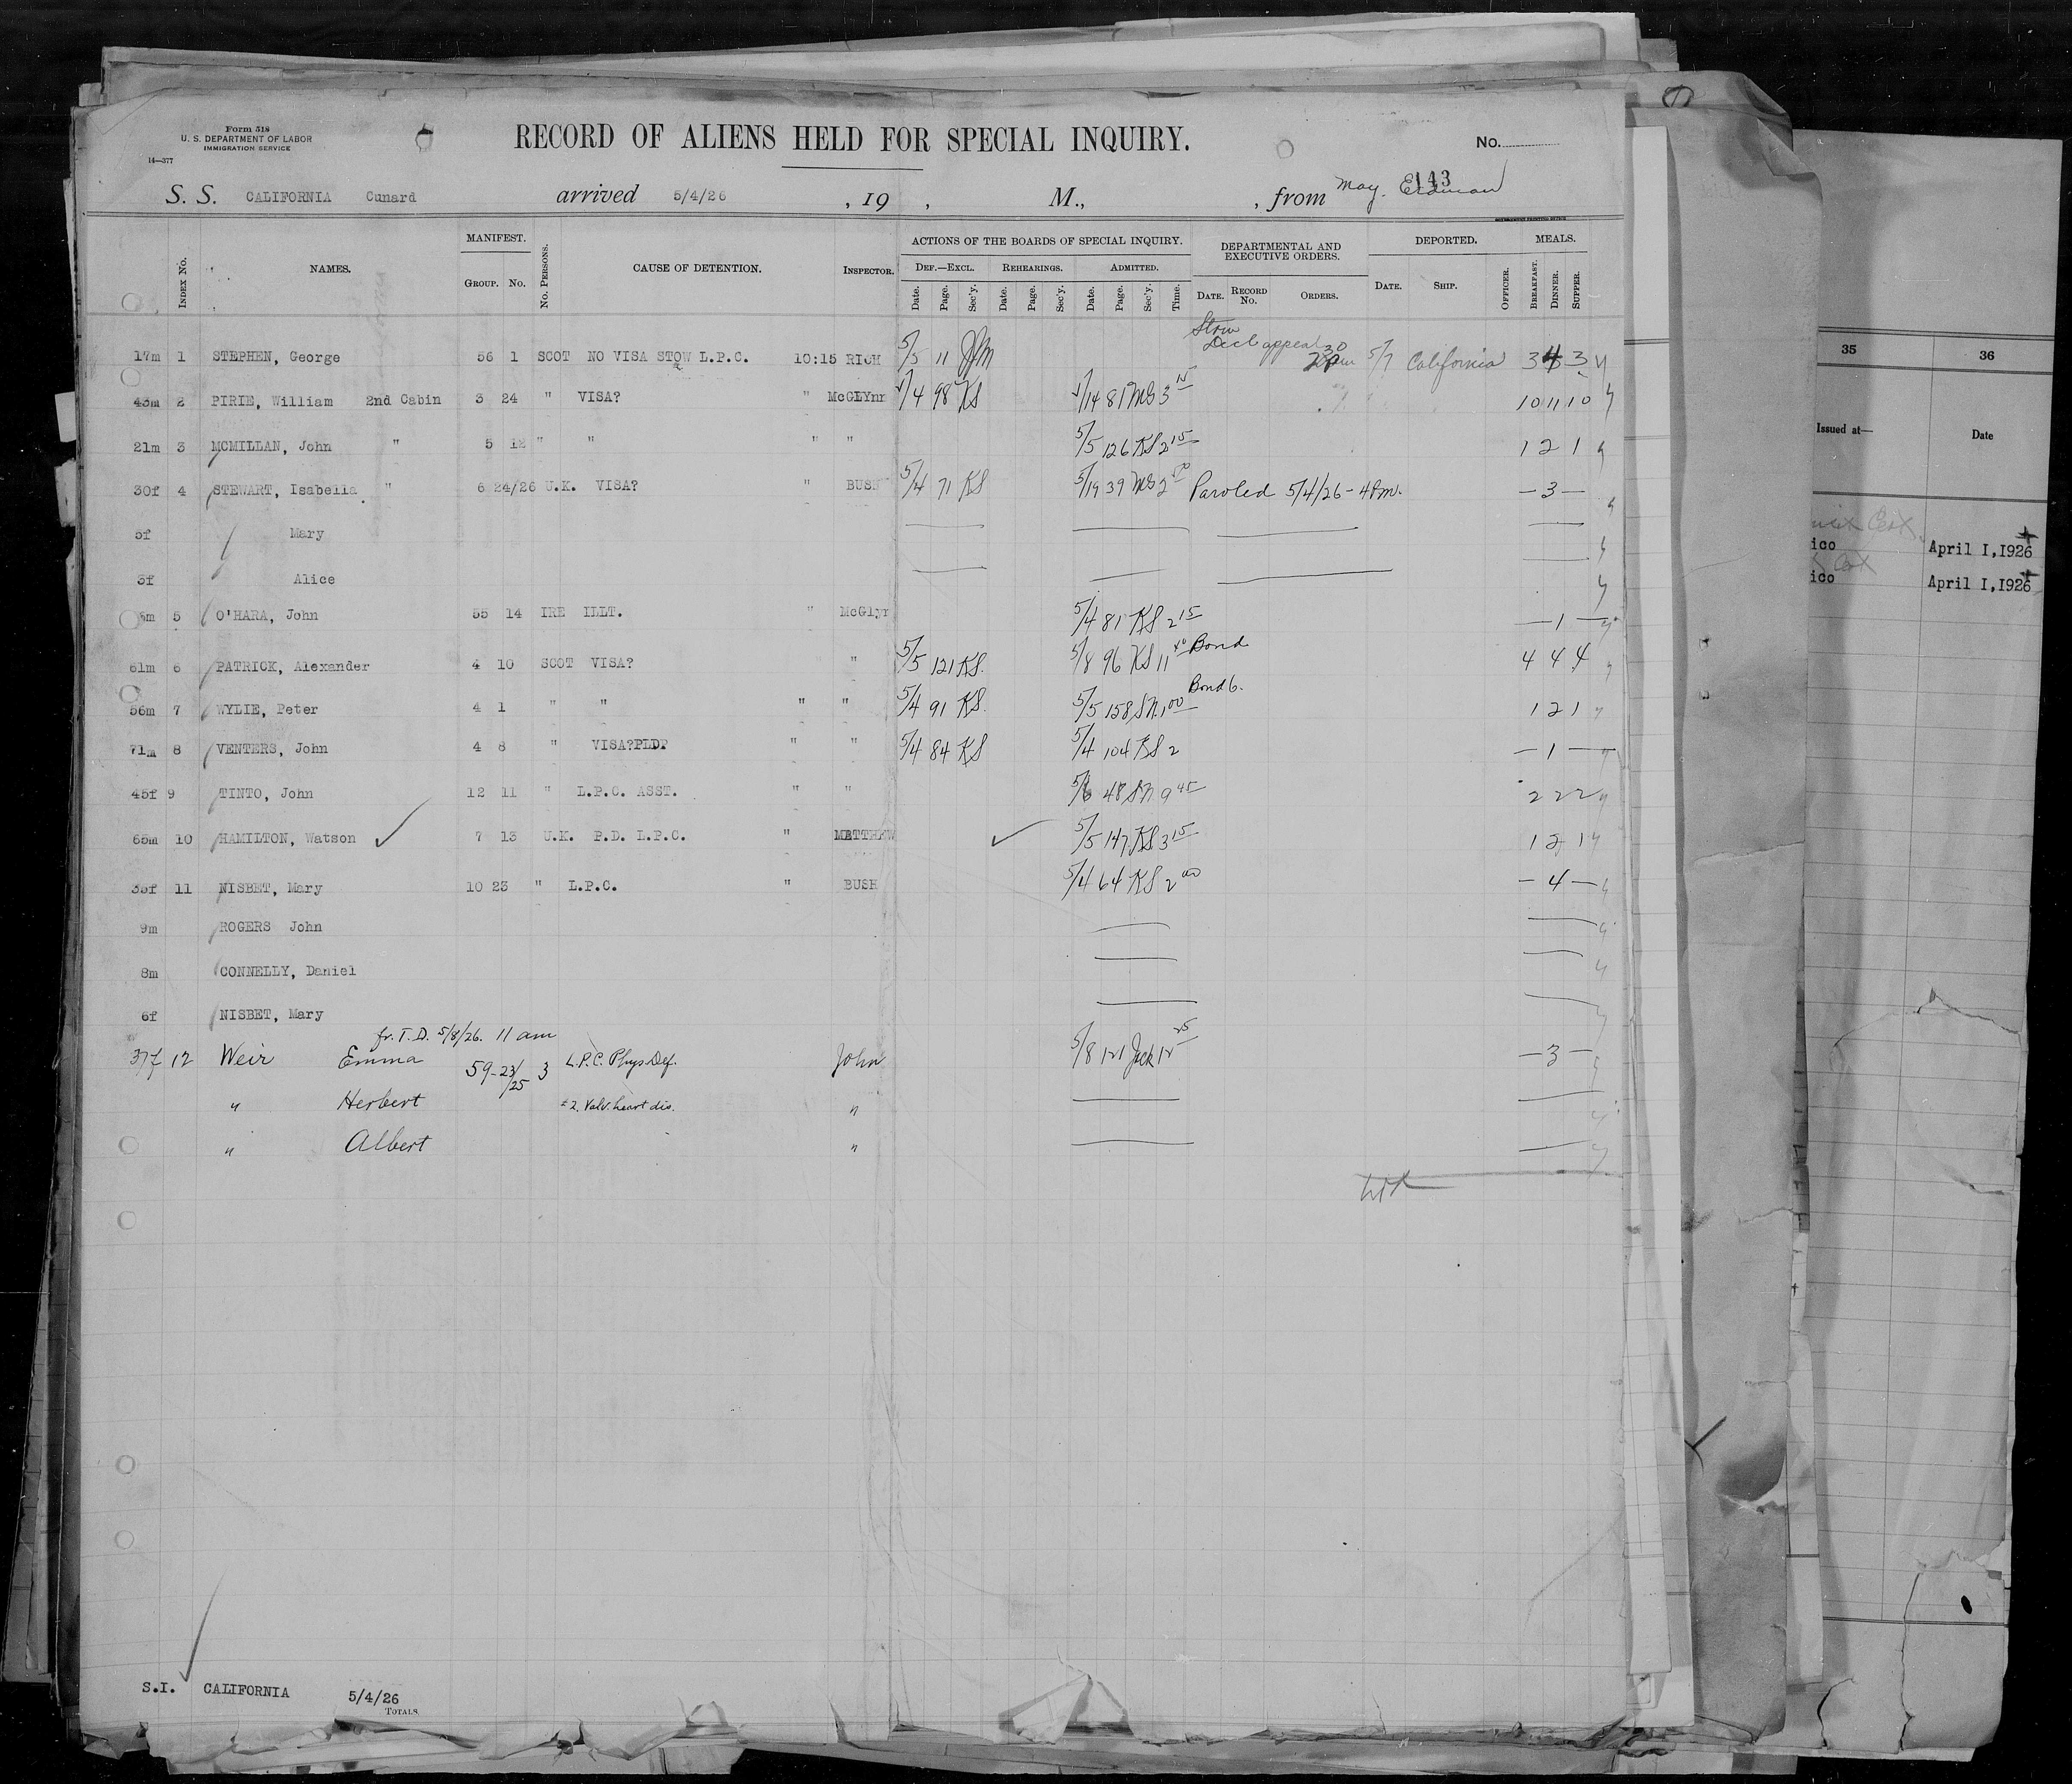 Form 518
U. S. DEPARTMENT OF LABOR
IMMIGRATION SERVICE
14—377
RECORD OF ALIENS HELD FOR SPECIAL INQUIRY.
No.
143
S. S. CALIFORNIA Cunard arrived 5/4/26 , 19 , M., , from May. Erdman
MANIFEST. ACTIONS OF THE BOARDS OF SPECIAL INQUIRY. DEPARTMENTAL AND EXECUTIVE ORDERS. DEPORTED. MEALS.
INDEX NO. NAMES. GROUP. NO. NO. PERSONS. CAUSE OF DETENTION. INSPECTOR. DEF.—EXCL. REHEARINGS. ADMITTED.
Date. Page. Sec'y. Date. Page. Sec'y. Date. Page. Sec'y. Time. DATE. RECORD NO. ORDERS. DATE. SHIP. OFFICER. BREAKFAST. DINNER. SUPPER.
Stow
Decl appeal
17m 1 STEPHEN, George 56 1 SCOT NO VISA STOW L.P.C. 10:15 RICH 5/5 11 5/7 California 3 4 3
43m 2 PIRIE, William 2nd Cabin 3 24 " VISA? " McGLYnn 5/4 98 KS 5/14 81 MG 3 15 10 11 10
21m 3 MCMILLAN, John " 5 12 " " " " 5/5 126 KS 2 15 1 2 1
30f 4 STEWART, Isabella " 6 24/26 U.K. VISA? " BUSH 5/4 71 KS 5/19 39 MG 2 00 Paroled 5/4/26 - 4 Pm. — 3 —
5f Mary
3f Alice
m 5 O'HARA, John 55 14 IRE ILLT. " McGlyn 5/4 81 KS 2 15 — 1 —
61m 6 PATRICK, Alexander 4 10 SCOT VISA? " 5/5 121 KS. 5/8 96 KS 11 40 Bond 4 4 4
56m 7 WYLIE, Peter 4 1 " " " " 5/4 91 KS. 5/5 158 SN 1 00 Bond 6. 1 2 1
71m 8 VENTERS, John 4 8 " VISA?PLDP " " 5/4 84 KS 5/4 104 KS 2 — 1 —
45f 9 TINTO, John 12 11 " L.P.C. ASST. " " 5/6 48 SN 9 45 2 2 2
65m 10 HAMILTON, Watson 7 13 U.K. P.D. L.P.C. " MATTHEW 5/5 147 KS 3 15 1 2 1
35f 11 NISBET, Mary 10 23 " L.P.C. " BUSH 5/4 64 KS 2 00 — 4 —
9m ROGERS John
8m CONNELLY, Daniel
6f NISBET, Mary
fr. T.D. 5/8/26. 11 am
37f 12 Weir Emma 59-23/25 3 L.P.C. Phys. Def. John 5/8 121 Jack 12 25 — 3 —
" Herbert #2. Valv. heart dis. "
" Albert "
S.I. CALIFORNIA 5/4/26
TOTALS.
35 36
Issued at— Date
ico April 1,1926
ico April 1,1926